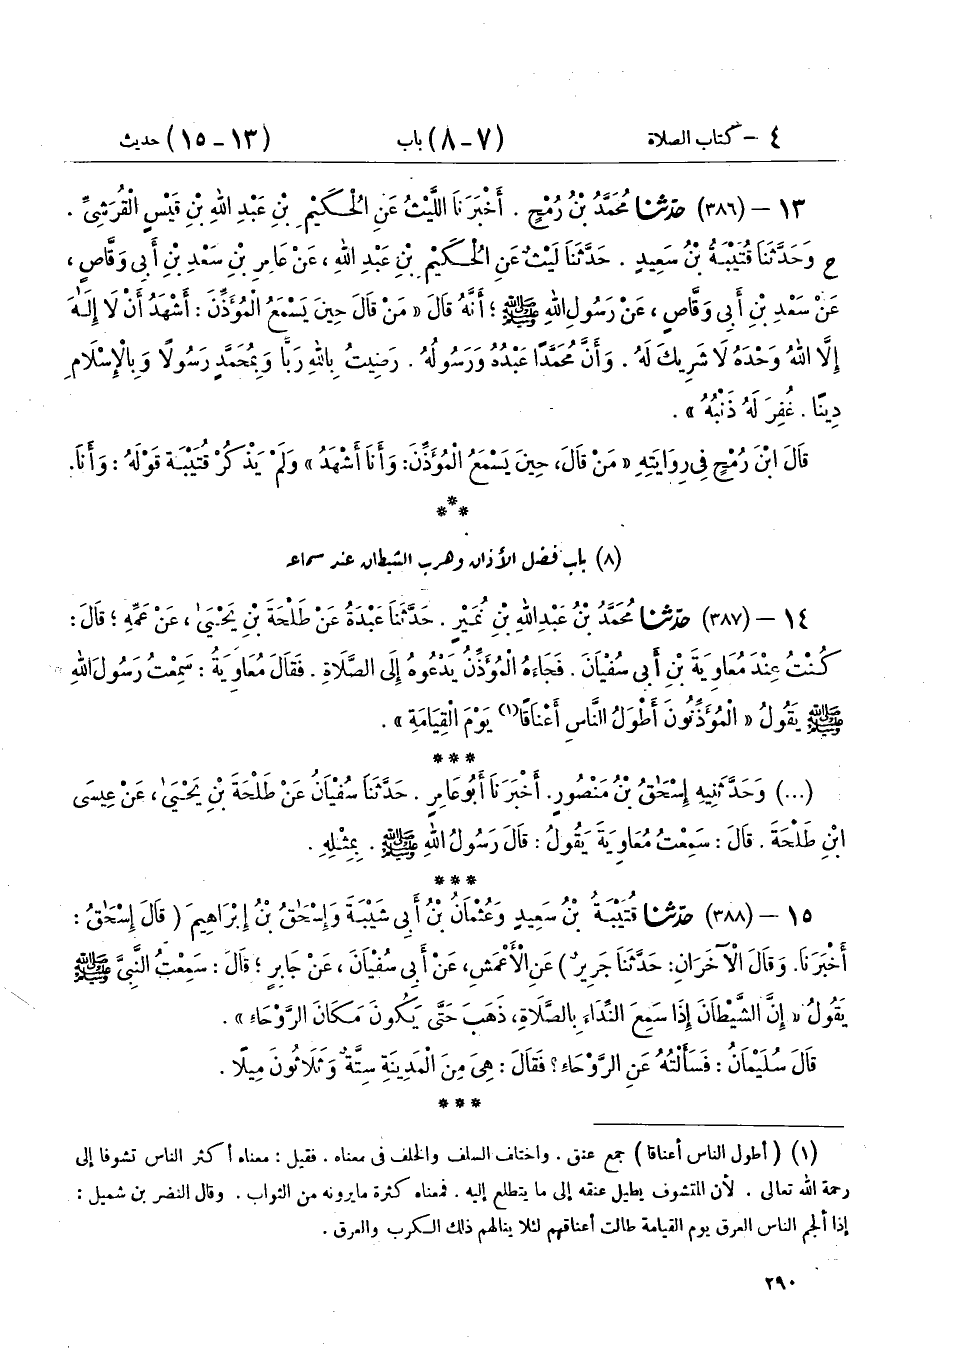 ٤ – كتاب الصلاة (٧-٨) باب (١٣-١٥) حديث
١٣ – (٣٨٦) حَدَّثَنَا مُحَمَّدُ بْنُ رُمْحٍ . أَخْبَرَنَا اللَّيْثُ عَنِ الْحُكَيْمِ بْنِ عَبْدِ اللهِ بْنِ قَيْسٍ الْقُرَشِيِّ .
ح وَحَدَّثَنَا قُتَيْبَةُ بْنُ سَعِيدٍ . حَدَّثَنَا لَيْثٌ عَنِ الْحُكَيْمِ بْنِ عَبْدِ اللهِ ، عَنْ عَامِرِ بْنِ سَعْدِ بْنِ أَبِي وَقَّاصٍ ،
عَنْ سَعْدِ بْنِ أَبِي وَقَّاصٍ ، عَنْ رَسُولِ اللهِ ﷺ ؛ أَنَّهُ قَالَ « مَنْ قَالَ حِينَ يَسْمَعُ الْمُؤَذِّنَ : أَشْهَدُ أَنْ لَا إِلَهَ
إِلَّا اللهُ وَحْدَهُ لَا شَرِيكَ لَهُ . وَأَنَّ مُحَمَّدًا عَبْدُهُ وَرَسُولُهُ . رَضِيتُ بِاللهِ رَبًّا وَبِمُحَمَّدٍ رَسُولًا وَبِالْإِسْلَامِ
دِينًا . غُفِرَ لَهُ ذَنْبُهُ » .
قَالَ ابْنُ رُمْحٍ فِي رِوَايَتِهِ « مَنْ قَالَ، حِينَ يَسْمَعُ الْمُؤَذِّنَ: وَأَنَا أَشْهَدُ » وَلَمْ يَذْكُرْ قُتَيْبَةُ قَوْلَهُ : وَأَنَا.
***
(٨) باب فضل الأذان وهرب الشيطان عند سماعه
١٤ – (٣٨٧) حَدَّثَنَا مُحَمَّدُ بْنُ عَبْدِ اللهِ بْنِ نُمَيْرٍ . حَدَّثَنَا عَبْدَةُ عَنْ طَلْحَةَ بْنِ يَحْيَىٰ ، عَنْ عَمِّهِ ؛ قَالَ :
كُنْتُ عِنْدَ مُعَاوِيَةَ بْنِ أَبِي سُفْيَانَ . فَجَاءَهُ الْمُؤَذِّنُ يَدْعُوهُ إِلَى الصَّلَاةِ . فَقَالَ مُعَاوِيَةُ : سَمِعْتُ رَسُولَ اللهِ
ﷺ يَقُولُ « الْمُؤَذِّنُونَ أَطْوَلُ النَّاسِ أَعْنَاقًا(١) يَوْمَ الْقِيَامَةِ » .
***
(...) وَحَدَّثَنِيهِ إِسْحَٰقُ بْنُ مَنْصُورٍ. أَخْبَرَنَا أَبُو عَامِرٍ . حَدَّثَنَا سُفْيَانُ عَنْ طَلْحَةَ بْنِ يَحْيَىٰ ، عَنْ عِيسَى
ابْنِ طَلْحَةَ . قَالَ : سَمِعْتُ مُعَاوِيَةَ يَقُولُ : قَالَ رَسُولُ اللهِ ﷺ . بِمِثْلِهِ .
***
١٥ – (٣٨٨) حَدَّثَنَا قُتَيْبَةُ بْنُ سَعِيدٍ وَعُثْمَانُ بْنُ أَبِي شَيْبَةَ وَإِسْحَٰقُ بْنُ إِبْرَاهِيمَ ( قَالَ إِسْحَٰقُ :
أَخْبَرَنَا. وَقَالَ الْآخَرَانِ: حَدَّثَنَا جَرِيرٌ ) عَنِ الْأَعْمَشِ، عَنْ أَبِي سُفْيَانَ ، عَنْ جَابِرٍ ؛ قَالَ : سَمِعْتُ النَّبِيَّ ﷺ
يَقُولُ « إِنَّ الشَّيْطَانَ إِذَا سَمِعَ النِّدَاءَ بِالصَّلَاةِ، ذَهَبَ حَتَّى يَكُونَ مَكَانَ الرَّوْحَاءِ » .
قَالَ سُلَيْمَانُ : فَسَأَلْتُهُ عَنِ الرَّوْحَاءِ؟ فَقَالَ : هِيَ مِنَ الْمَدِينَةِ سِتَّةٌ وَثَلَاثُونَ مِيلًا .
***
(١) ( أطول الناس أعناقا ) جمع عنق . واختلف السلف والخلف في معناه . فقيل : معناه أكثر الناس تشوفا إلى
رحمة الله تعالى . لأن المتشوف يطيل عنقه إلى ما يتطلع إليه . فمعناه كثرة مايرونه من الثواب . وقال النضر بن شميل :
إذا ألجم الناس العرق يوم القيامة طالت أعناقهم لئلا ينالهم ذلك الكرب والعرق .
٢٩٠